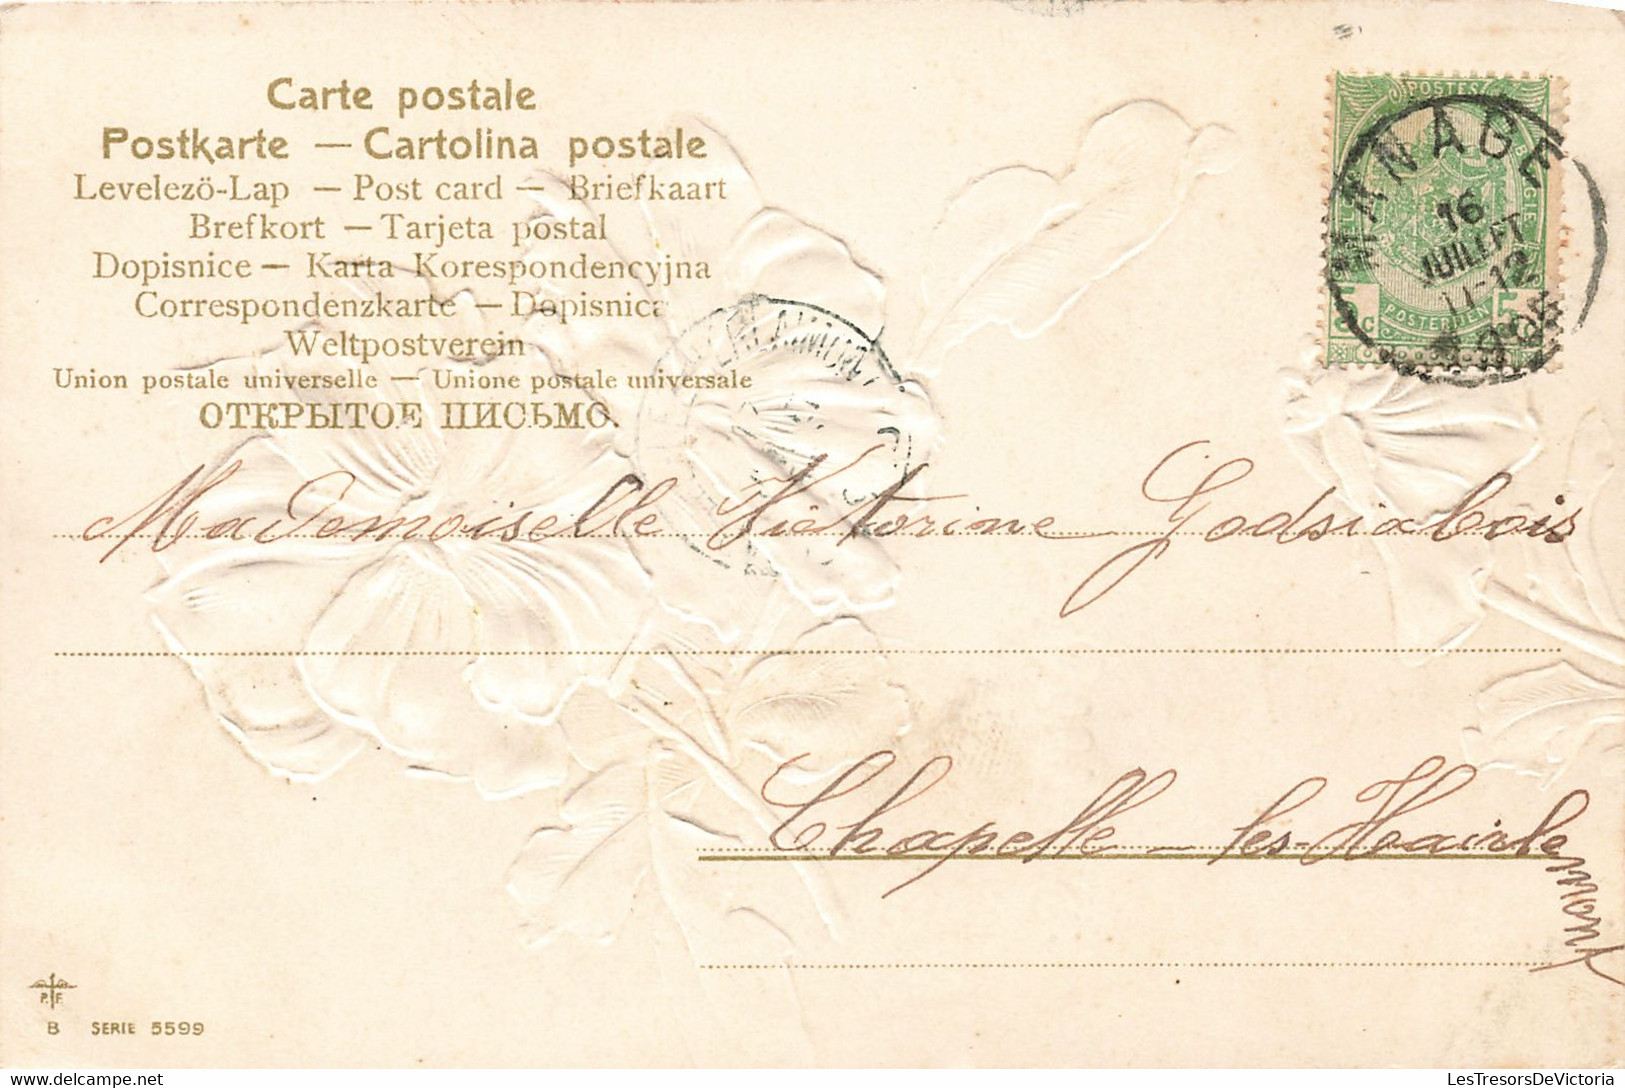 Carte postale
Postkarte — Cartolina postale
Levelezö-Lap — Post card — Briefkaart
Brefkort — Tarjeta postal
Dopisnice — Karta Korespondencyjna
Correspondenzkarte — Dopisnica
Weltpostverein
Union postale universelle — Unione postale universale
ОТКРЫТОЕ ПИСЬМО.
POSTES
MANAGE
16
JUILLET
11-12
5 c
5
POSTERIJEN
Mademoiselle Victorine Godsiabois
Chapelle-lez-Hairle
P. F.
B SERIE 5599
delcampe.net
LesTresorsDeVictoria